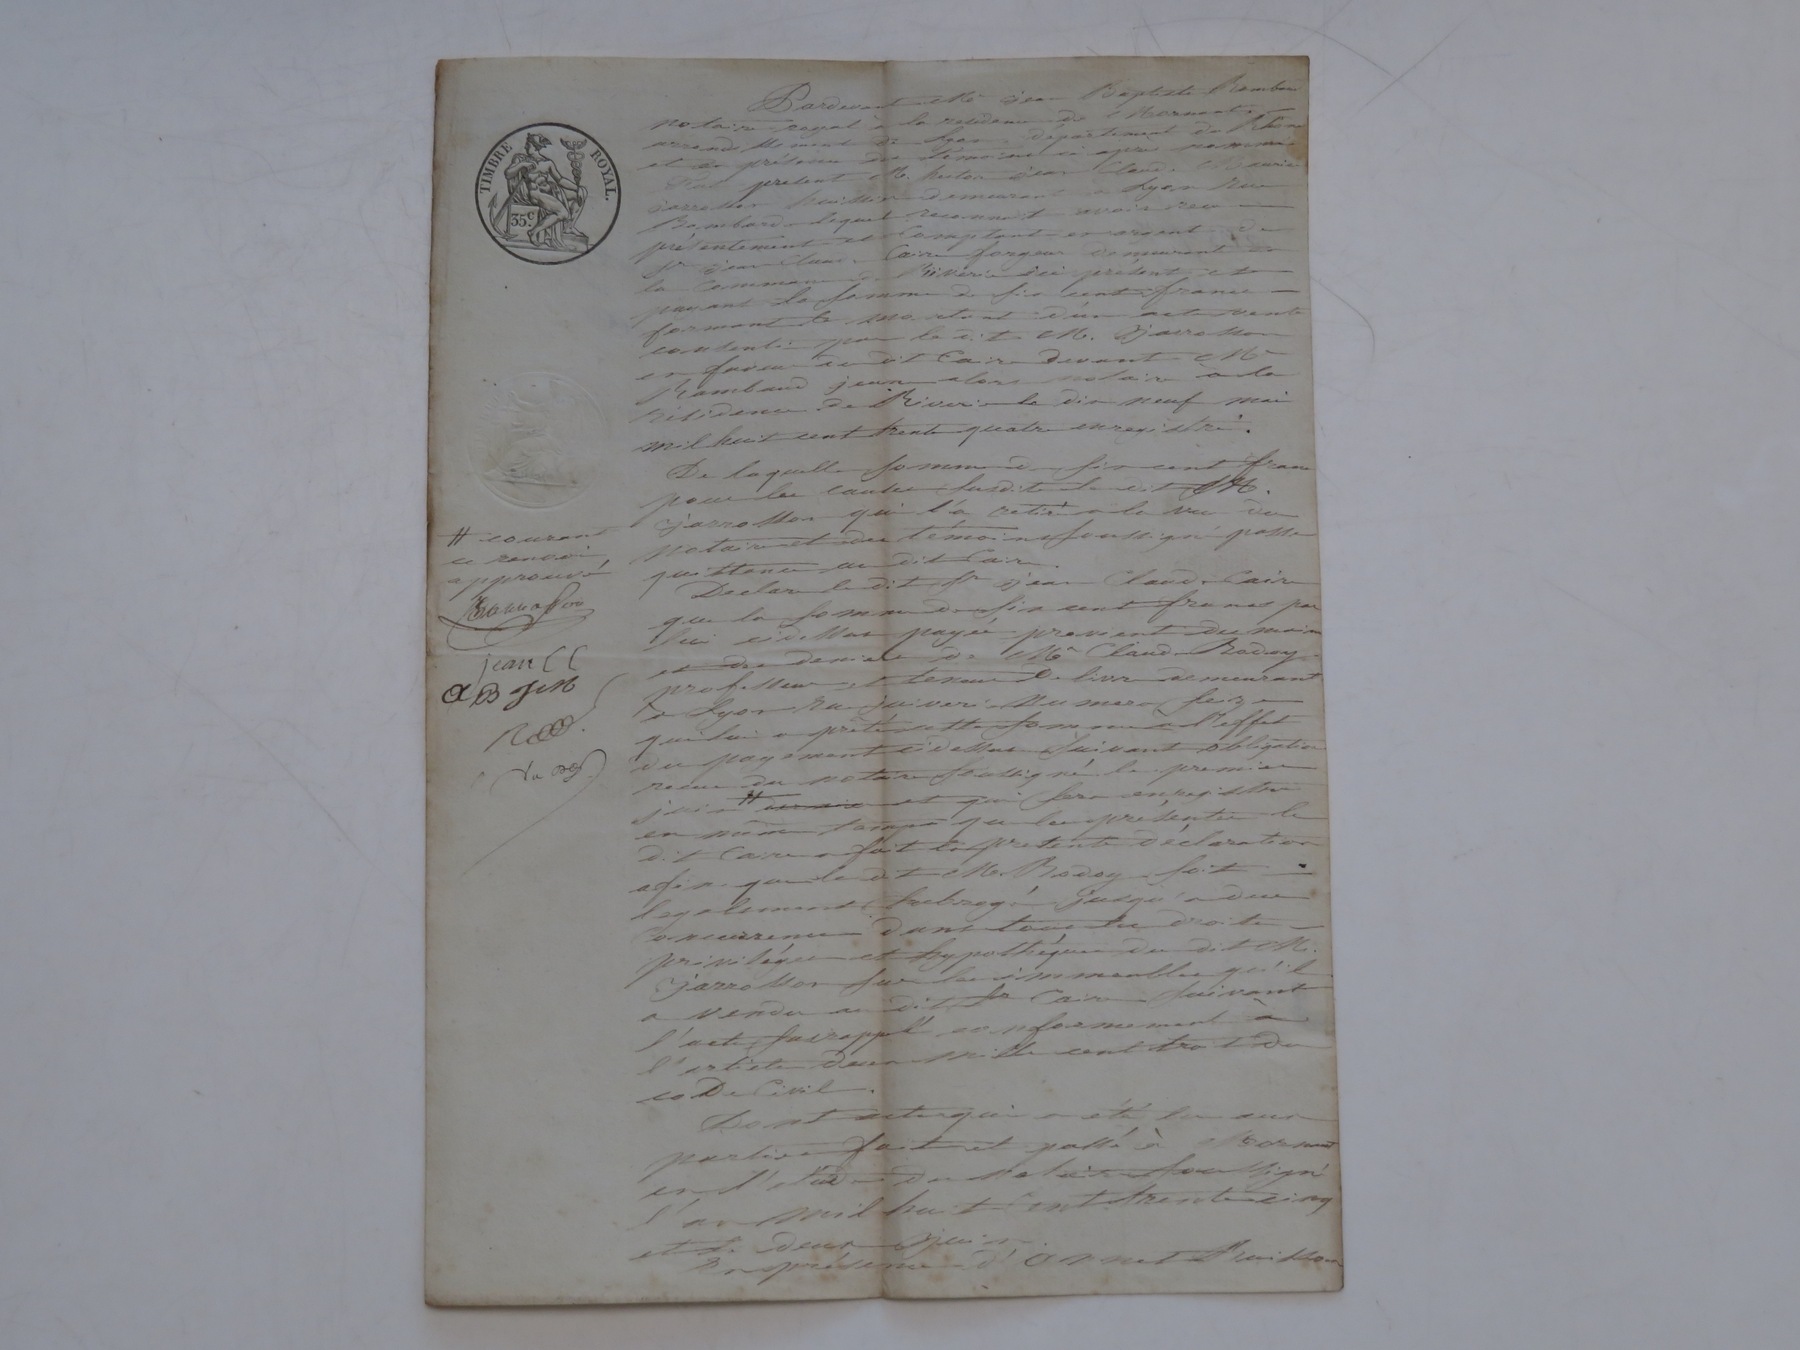 TIMBRE ROYAL.
35 c.
Pardevant Me jean Baptiste Rambaud
notaire royal à la residence de Mornant
arrondissement de Lyon département du Rhône
et en présence des témoins ci après nommé
fut présent M. jean Claude
jarrosson huissier demeurant a Lyon rue
Bombarde lequel reconnait avoir recu
présentement et comptant en argent de
Sr jean Claude Caire forgeur demeurant en
la commune de Riverie ici présent et
payant la somme de six cent francs
formant le montant d'un act vente
consenti par le dit M. jarrosson
en faveur du dit Caire devant Me
Rambaud jean alors notaire à la
résidence de Riverie le dix neuf mai
mil huit cent trente quatre enregistré.
De laquelle somme de six cent franc
pour les causes susdite le dit M.
jarrosson qui l'a retiré a la vue du
notaire et des témoins soussigné passe
quittance au dit Caire.
Declare le dit Sr jean Claude Caire
que la somme de six cent francs par
lui cidessus payée provient des mains
et des deniers de Mr Claude Rodoy
professeur et teneur De livre demeurant
a Lyon rue juiverie numero seize
qui lui a prété cette somme a l'effet
du payement cidessus suivant obligation
recue du notaire soussigné le premier
juin # dernier et qui sera enregistré
en même temps que les présentes le
dit Caire a fait la présente déclaration
afin que le dit M. Rodoy soit
légalement subrogé jusqu'a due
concurrence dans tous les droits
privilèges et hypothèques du dit M.
jarrosson sur les immeubles qu'il
a vendu au dit Sr Caire suivant
l'acte susrappelé conformement à
l'article deux mille cent trois du
coDe Civil.
Dont acte qui a été lu aux
parties fait et passé à Mornant
en l'étude du notaire soussigné
l'an mil huit cent trente cinq
et le deux juin.
En présence d'
# courant
ce renvoi
approuvé
jean C C